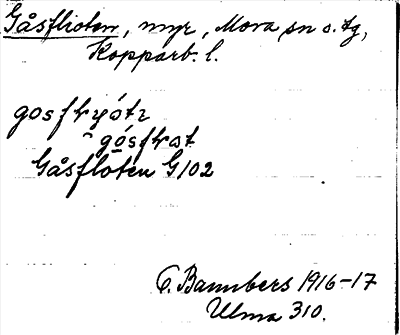 Gåsflioten, myr, Mora sn o. tg,
Kopparb. l.
gosfłyótı
gósfłot
Gåsfloten G102
O. Bannbers 1916-17
Ulma 310.